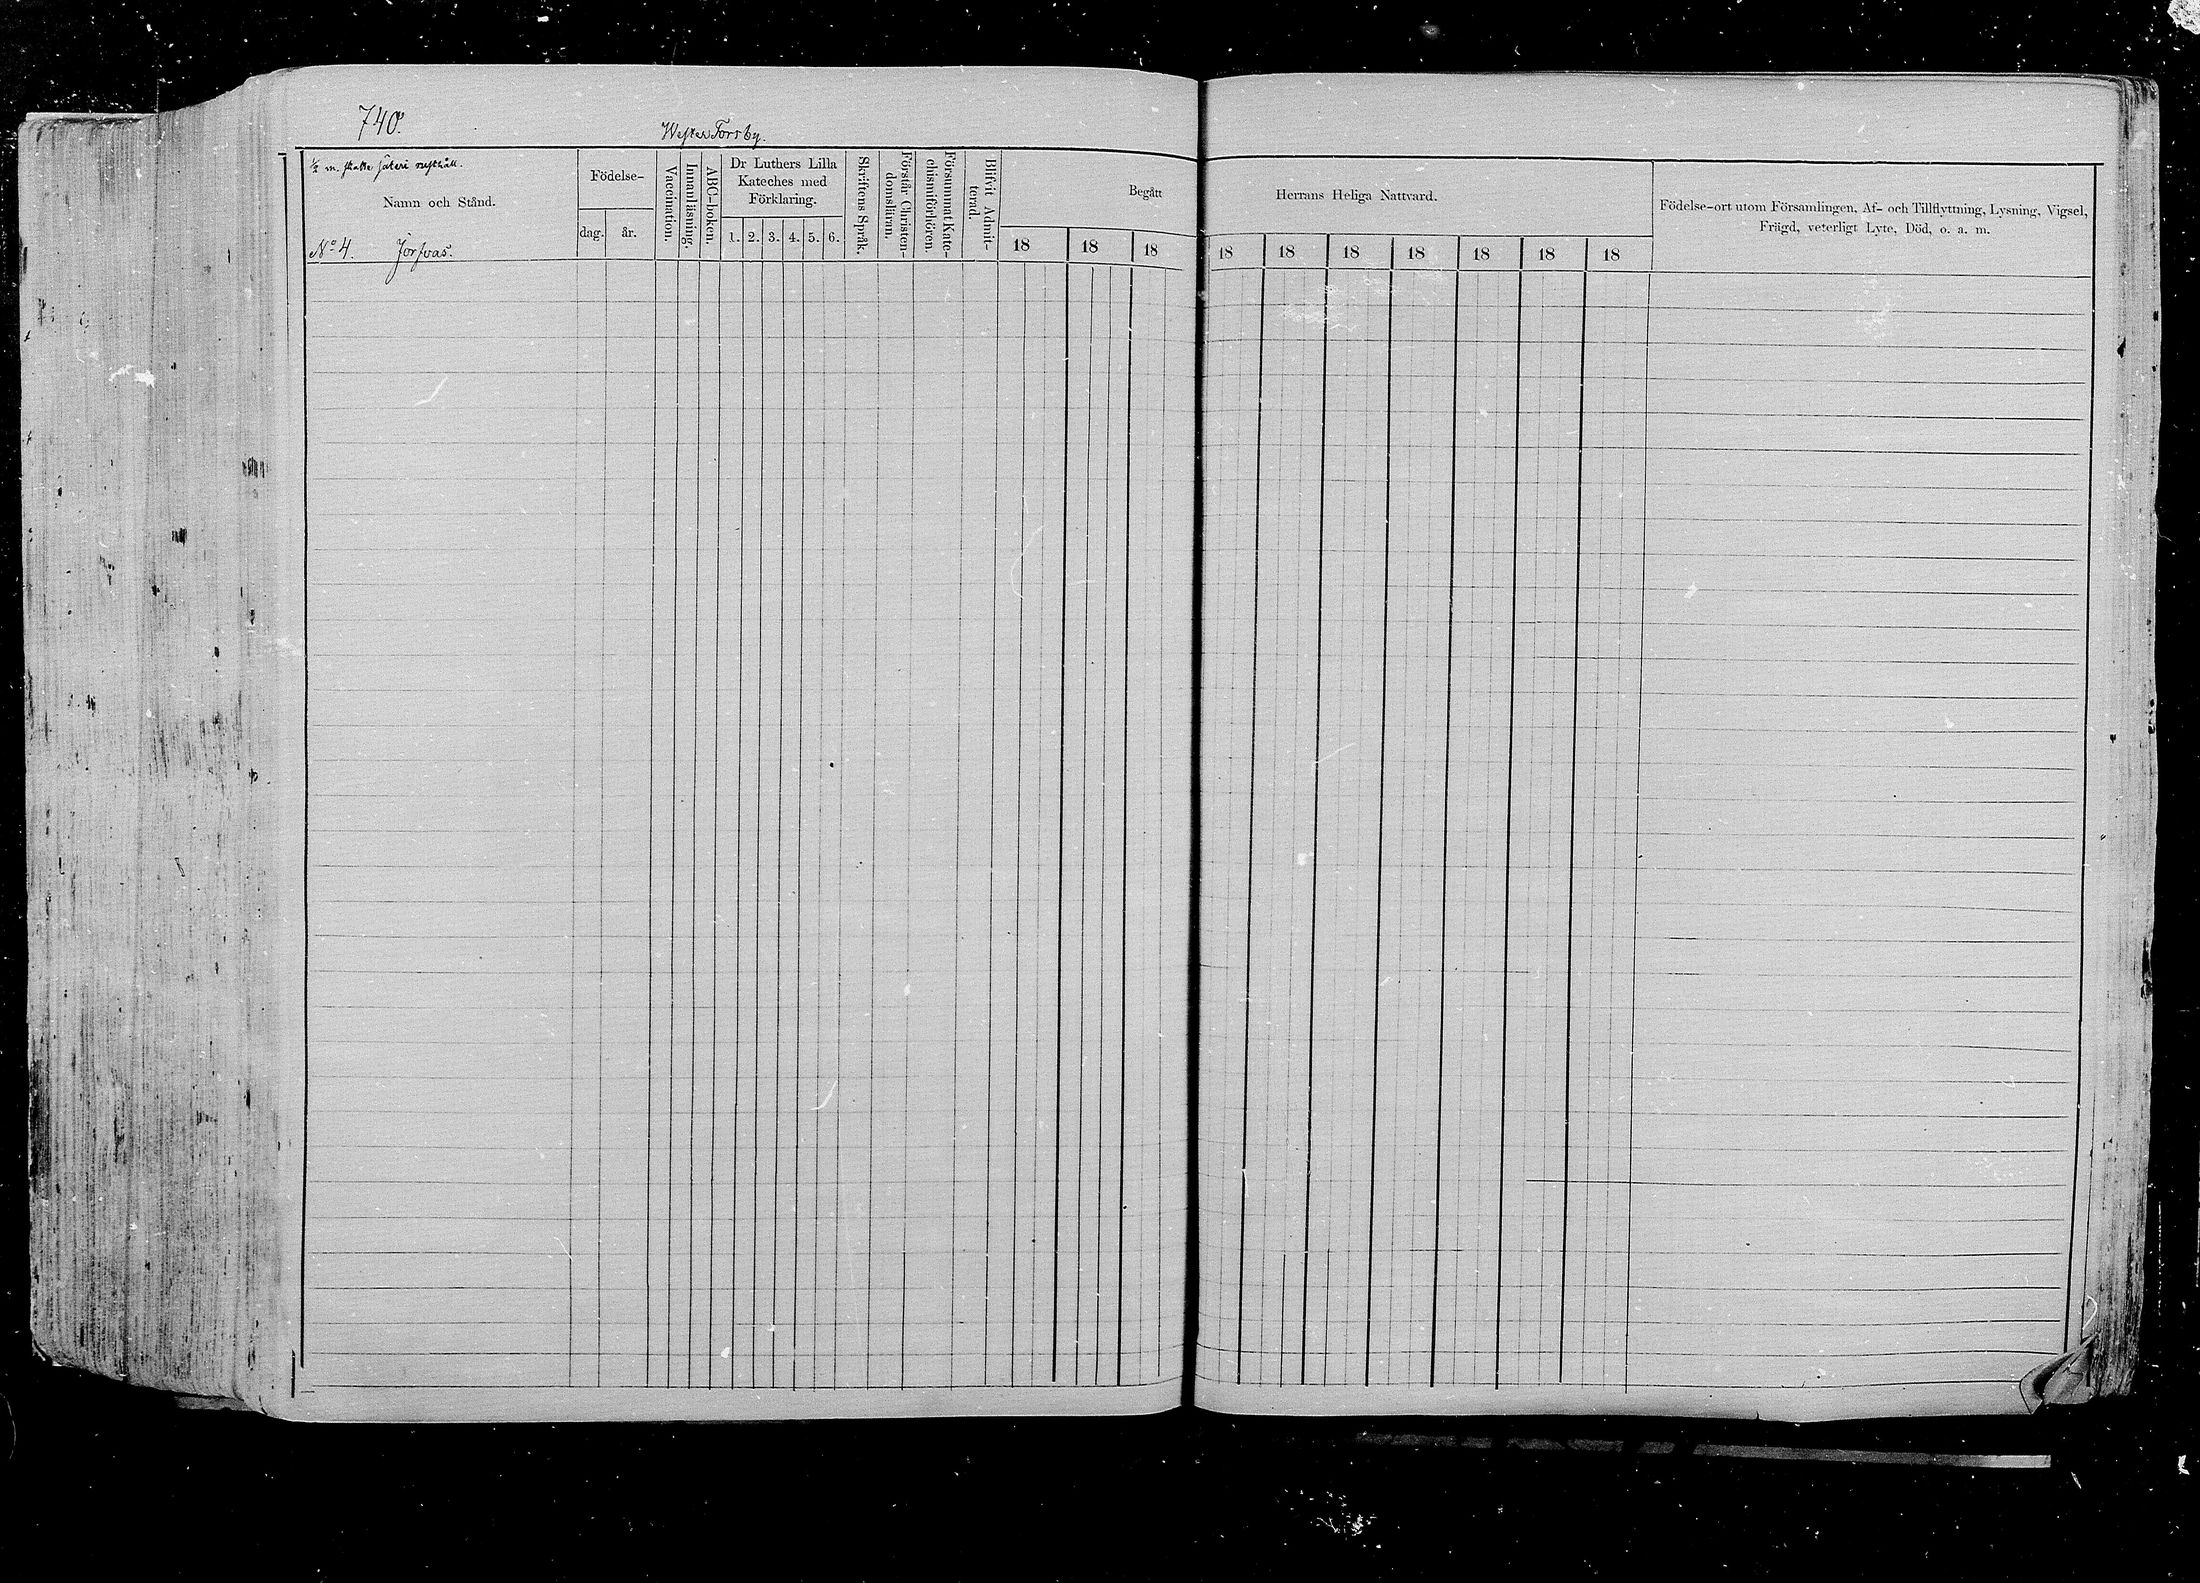 740.
Wester Torsby.
1/2 m. skatte säteri rusthåll.
Namn och Stånd.
No 4. Jorfvas.
Födelse-
dag. år.
Vaccination.
Innanläsning.
ABC-boken.
Dr Luthers Lilla
Kateches med
Förklaring.
1. 2. 3. 4. 5. 6.
Skriftens Språk.
Förstår Christen-
domslärän.
Försummat Kate-
chismiförhören.
Blifvit Admit-
terad.
Begått
18 18 18
Herrans Heliga Nattvard.
18 18 18 18 18 18 18
Födelse-ort utom Församlingen, Af- och Tillflyttning, Lysning, Vigsel,
Frägd, veterligt Lyte, Död, o. a. m.